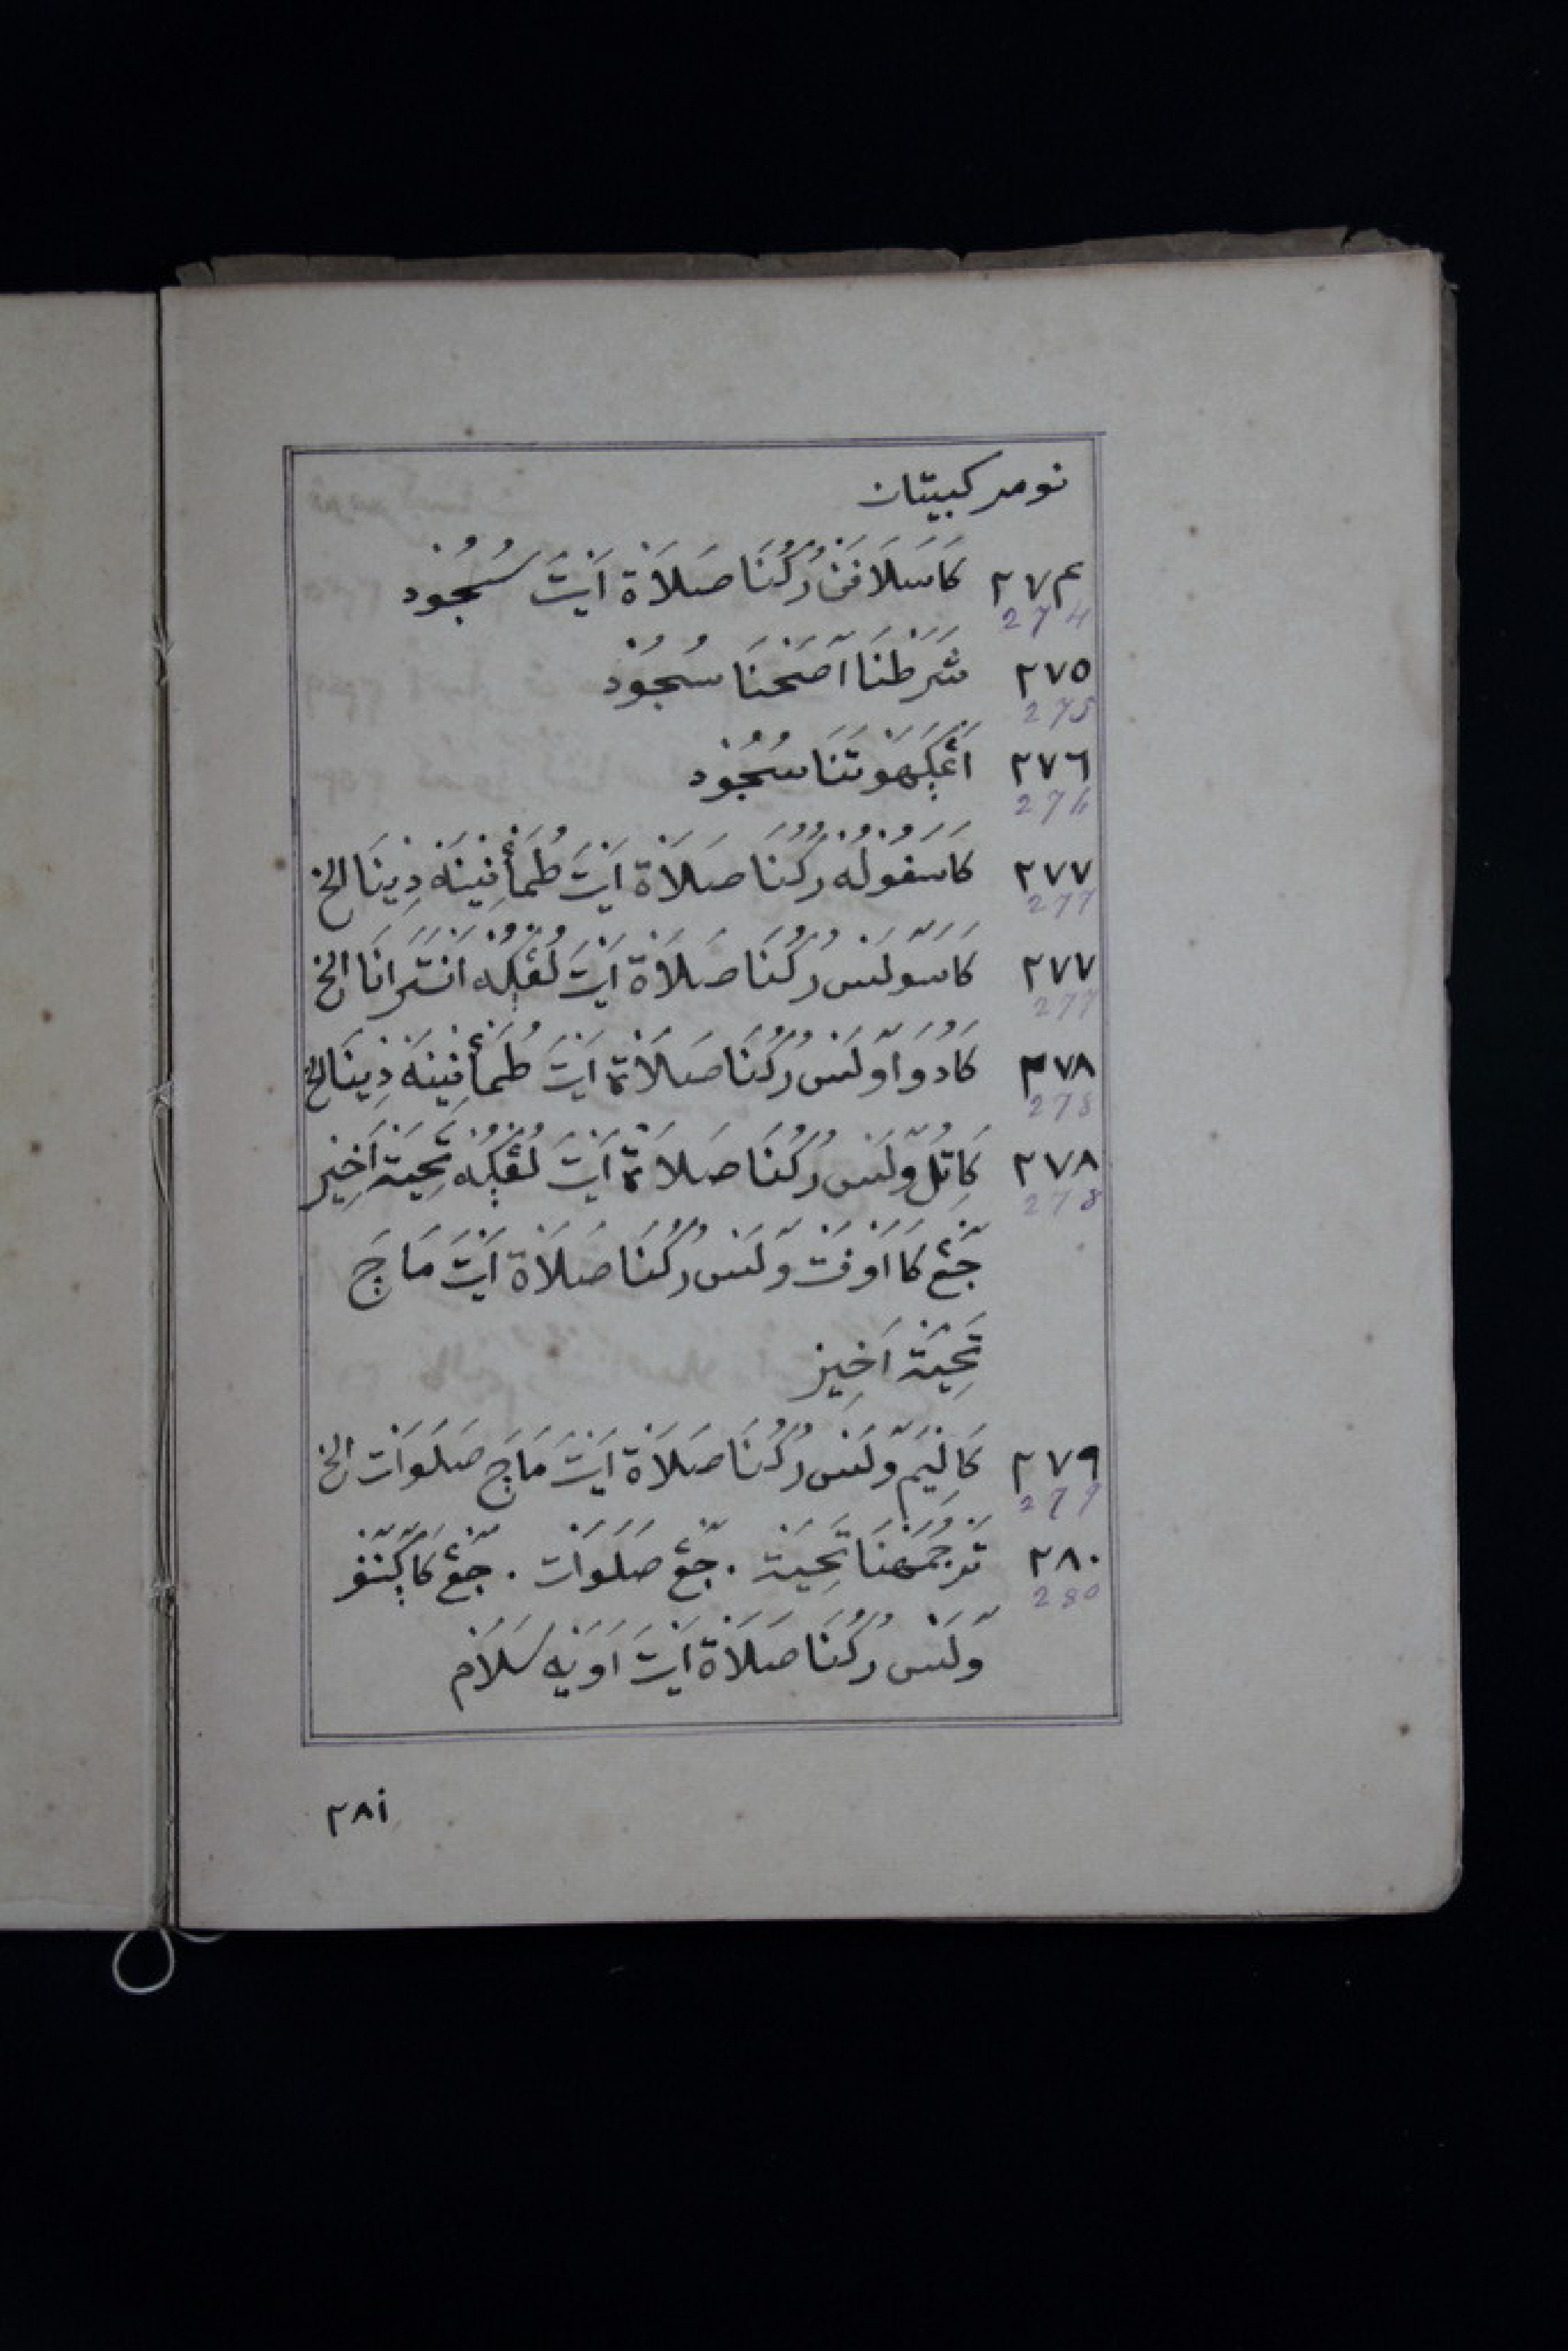 نومر كبيتان
٢٧۴ كَاسَلَافَنْ رُكُنَا صَلَاَةْ اَيْتَ سُجُوْد
274
٢٧٥ شَرَطْنَا آصَحْنَا سُجُوْد
275
٢٧٦ اَڠْكَهَوْتَنَا سُجُوْد
276
٢٧٧ كَاسَفُوْلُهْ رُكُنَا صَلَاَةْ اَيْتَ طُمَأْنِيْنَهْ دِيْنَا الخ
277
٢٧٧ كَاسَوَلَسْ رُكُنَا صَلَاَةْ اَيْتَ لُڠْكُهْ اَنْتَرَانَا الخ
277
٢٧٨ كَادُوَاوَلَسْ رُكُنَا صَلَاَةْ اَيْتَ طُمَأْنِيْنَهْ دِيْنَا الخ
278
٢٧٨ كَاتِلُوَلَسْ رُكُنَا صَلَاَةْ اَيْتَ لُڠْكُهْ تَحِيَةْ اَخِيْر
278
جَڠْ كَااَوْفَتْ وَلَسْ رُكُنَا صَلَاَةْ اَيْتَ مَاجَ
تَحِيَةْ اَخِيْر
٢٧٩ كَالِيْمَ وَلَسْ رُكُنَا صَلَاَةْ اَيْتَ مَاجَ صَلَوَاتْ الخ
279
٢٨٠ تَرْجُمَهْنَا تَحِيَةْ . جَڠْ صَلَوَاتْ . جَڠْ كَاكَنَڤْ
280
وَلَسْ رُكُنَا صَلَاَةْ اَيْتَ اَوَيْهْ سَلَامْ
٢٨١